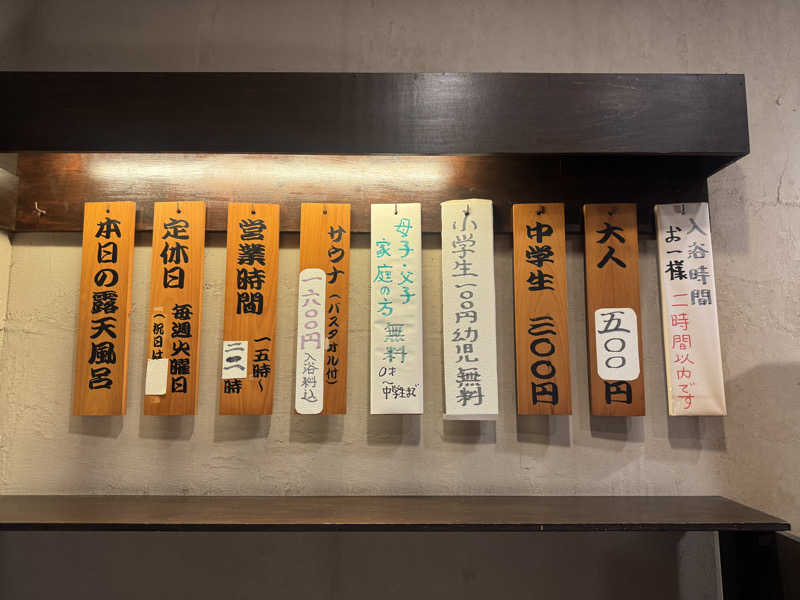 入浴時間
お一様
二時間以内です
大人
五〇〇円
中学生
三〇〇円
小学生一〇〇円幼児無料
母子・父子
家庭の方
無料
0才〜中学生まで
サウナ(バスタオル付)
一六〇〇円
入浴料込
営業時間
一五時〜
二二時
定休日
毎週火曜日
(祝日は
本日の露天風呂